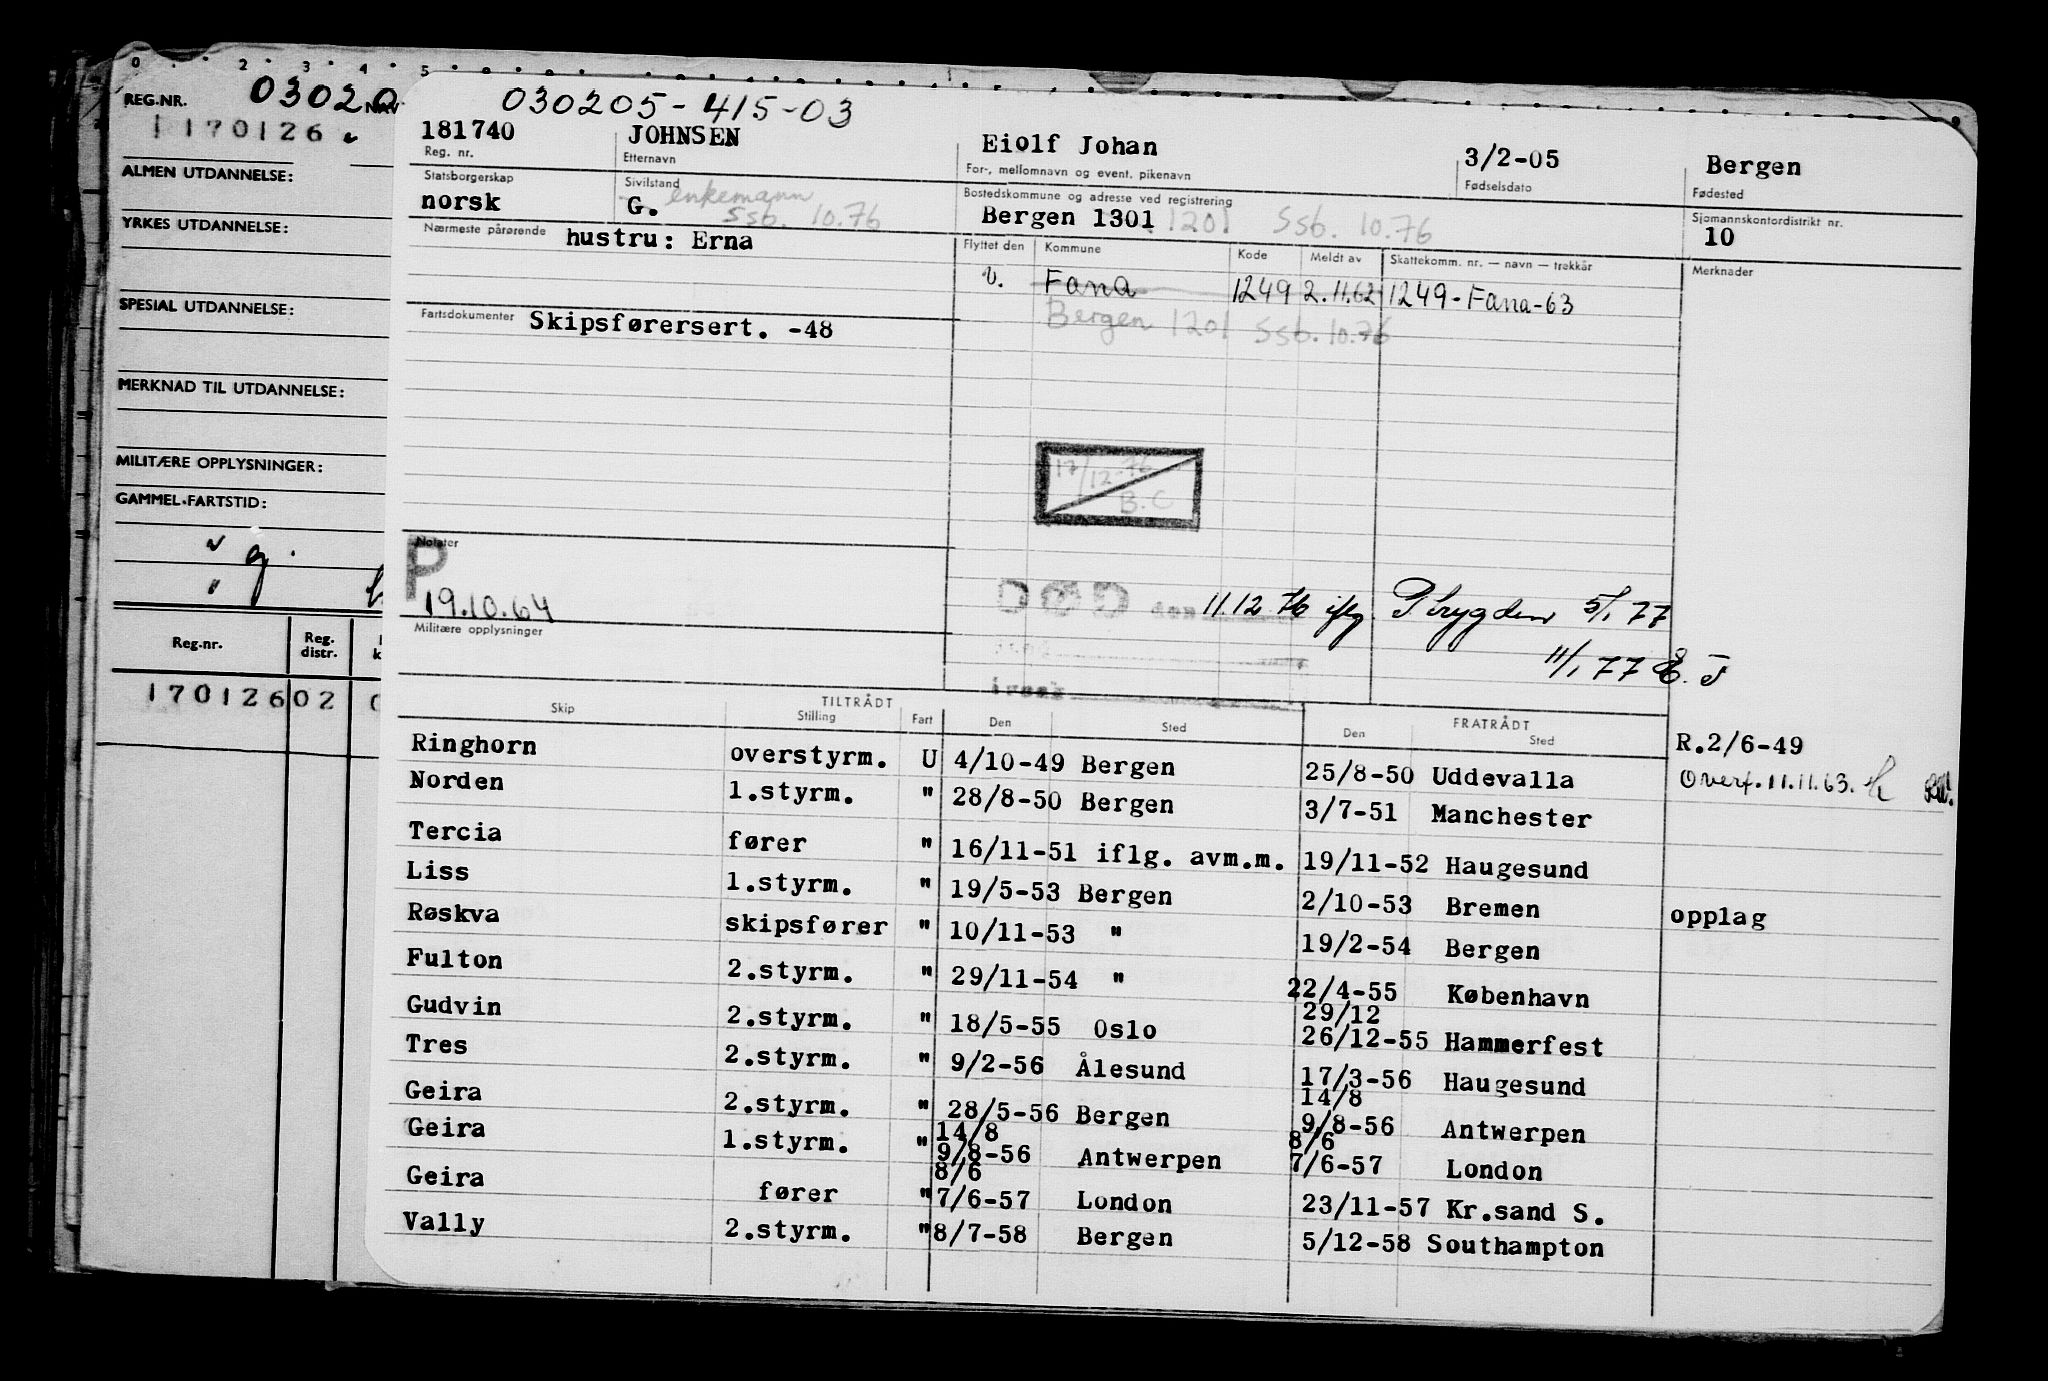 0 2 3 4 5
REG.NR. 03020 NAV
170126
ALMEN UTDANNELSE:
YRKES UTDANNELSE:
SPESIAL UTDANNELSE:
MERKNAD TIL UTDANNELSE:
MILITÆRE OPPLYSNINGER:
GAMMEL-FARTSTID:
Reg.nr. Reg. distr.
170126 02
030205-415-03
181740 JOHNSEN Eiolf Johan 3/2-05 Bergen
Reg. nr. Etternavn For-, mellomnavn og event. pikenavn Fødselsdato Fødested
Statsborgerskap Sivilstand Bostedskommune og adresse ved registrering Sjømannskontordistrikt nr.
norsk G. enkemann Ssb. 10.76 Bergen 1301 1201 Ssb. 10.76 10
Nærmeste pårørende hustru: Erna Flyttet den Kommune Kode Meldt av Skattekomm. nr. — navn — trekkår Merknader
v. Fana 1249 2.11.62 1249-Fana-63
Fartsdokumenter Skipsførersert. -48 Bergen 1201 Ssb. 10.76
17/12-76
B.C
Notater
P
19.10.64
DØD den 11.12.76 iflg. P.trygden 5/1 77
11/1 77
Militære opplysninger
Skip TILTRÅDT Stilling Fart Den Sted FRATRÅDT Den Sted
Ringhorn overstyrm. U 4/10-49 Bergen 25/8-50 Uddevalla R.2/6-49
Norden 1.styrm. " 28/8-50 Bergen 3/7-51 Manchester Overf. 11.11.63.
Tercia fører " 16/11-51 iflg. avm.m. 19/11-52 Haugesund
Liss 1.styrm. " 19/5-53 Bergen 2/10-53 Bremen opplag
Røskva skipsfører " 10/11-53 " 19/2-54 Bergen
Fulton 2.styrm. " 29/11-54 " 22/4-55 København
29/12
Gudvin 2.styrm. " 18/5-55 Oslo 26/12-55 Hammerfest
Tres 2.styrm. " 9/2-56 Ålesund 17/3-56 Haugesund
14/8
Geira 2.styrm. " 28/5-56 Bergen 9/8-56 Antwerpen
14/8 8/6
Geira 1.styrm. " 9/8-56 Antwerpen 7/6-57 London
8/6
Geira fører " 7/6-57 London 23/11-57 Kr.sand S.
Vally 2.styrm. " 8/7-58 Bergen 5/12-58 Southampton